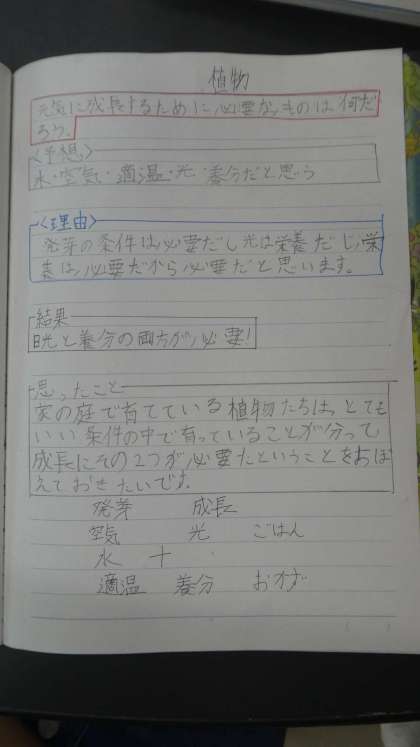 植物
元気に成長するために必要なものは何だ
ろう。
〈予想〉
水・空気・適温・光・養分だと思う
〈理由〉
発芽の条件は必要だし光は栄養だし、栄
養は、必要だから必要だと思います。
結果
日光と養分の両方が必要!
思ったこと
家の庭で育てている植物たちは、とても
いい条件の中で育っていることが分って
成長にその2つが必要だということをおぼ
えておきたいです。
発芽 成長
空気 光 ごはん
水 十
適温 養分 おかず